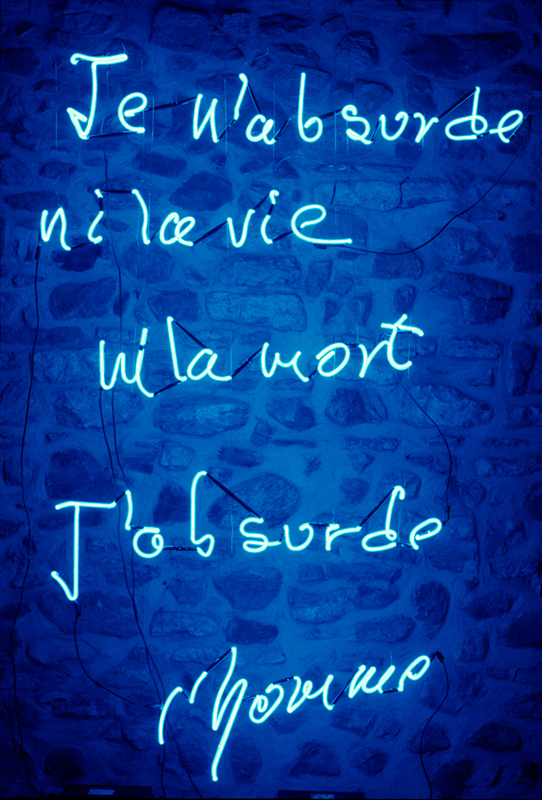 Je n'absurde
ni la vie
ni la mort
J'absurde
l'homme